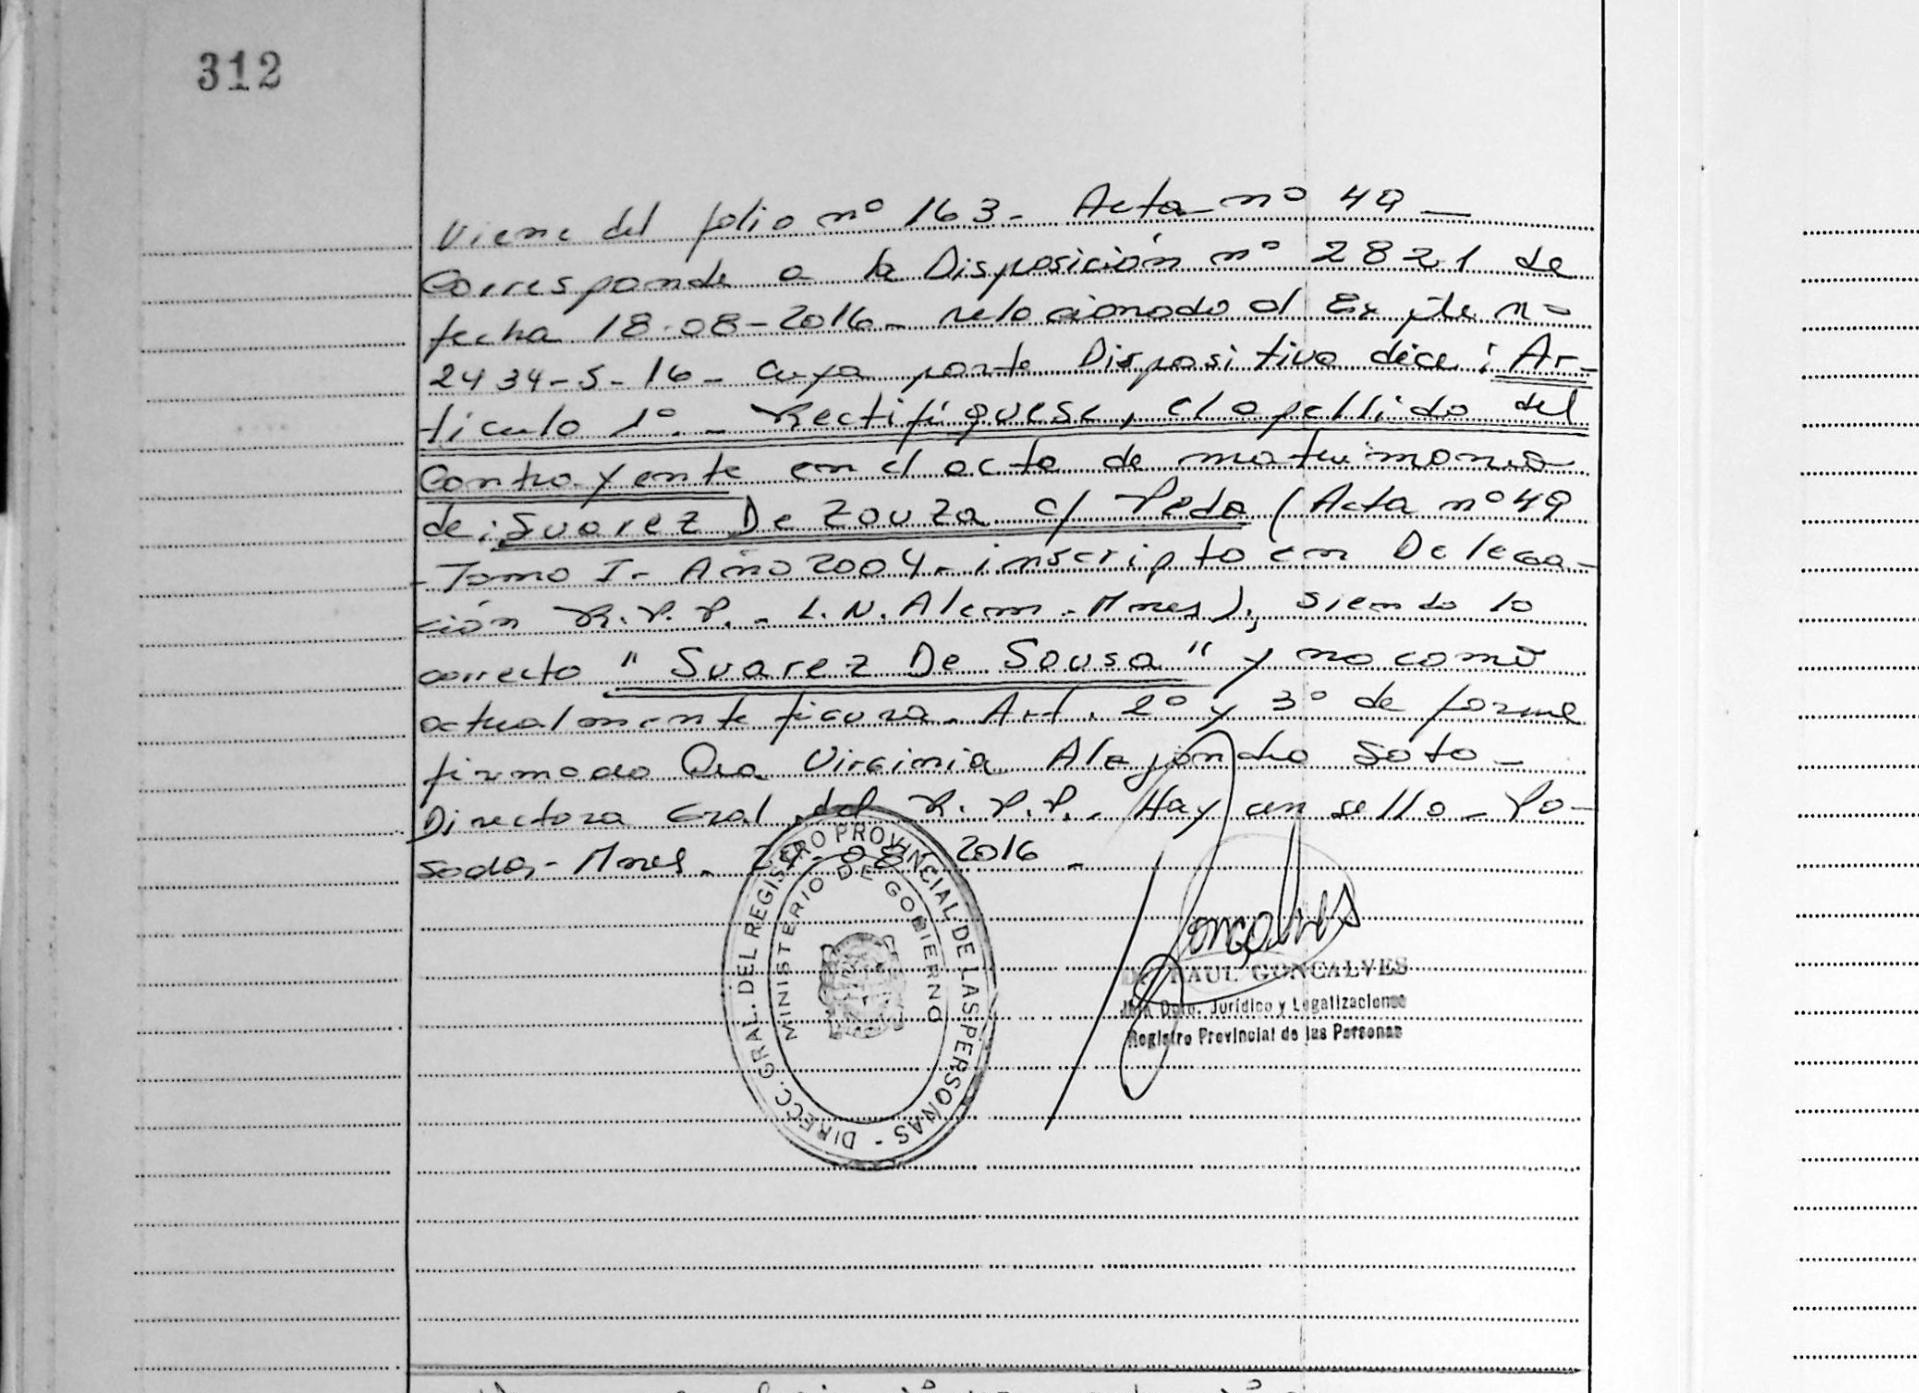 312
Viene del folio nº 163- Acta nº 49 -
Corresponde a la Disposición nº 2821 de
fecha 18-08-2016- relacionado al Expte nº
2434-S-16- cuya parte Dispositiva dice: Ar-
tículo 1º.- Rectifíquese, el apellido del
Contrayente en el acta de matrimonio
de: Suarez De Zouza c/ Peda (Acta nº 49
-Tomo I- Año 2004- inscripto en Delega-
ción R.P.P. - L.N. Alem - Mnes), siendo lo
correcto "Suarez De Sousa" y no como
actualmente figura. Art. 2º y 3º de forma
firmado Dra Virginia Alejandra Soto -
Directora Gral del R.P.P.- Hay un sello - Po-
sadas - Mnes. 08 2016 -
DIRECC. GRAL. DEL REGISTRO PROVINCIAL DE LAS PERSONAS -
MINISTERIO DE GOBIERNO
Goncalves
RAUL GONCALVES
Dpto. Jurídico y Legalizaciones
Registro Provincial de las Personas